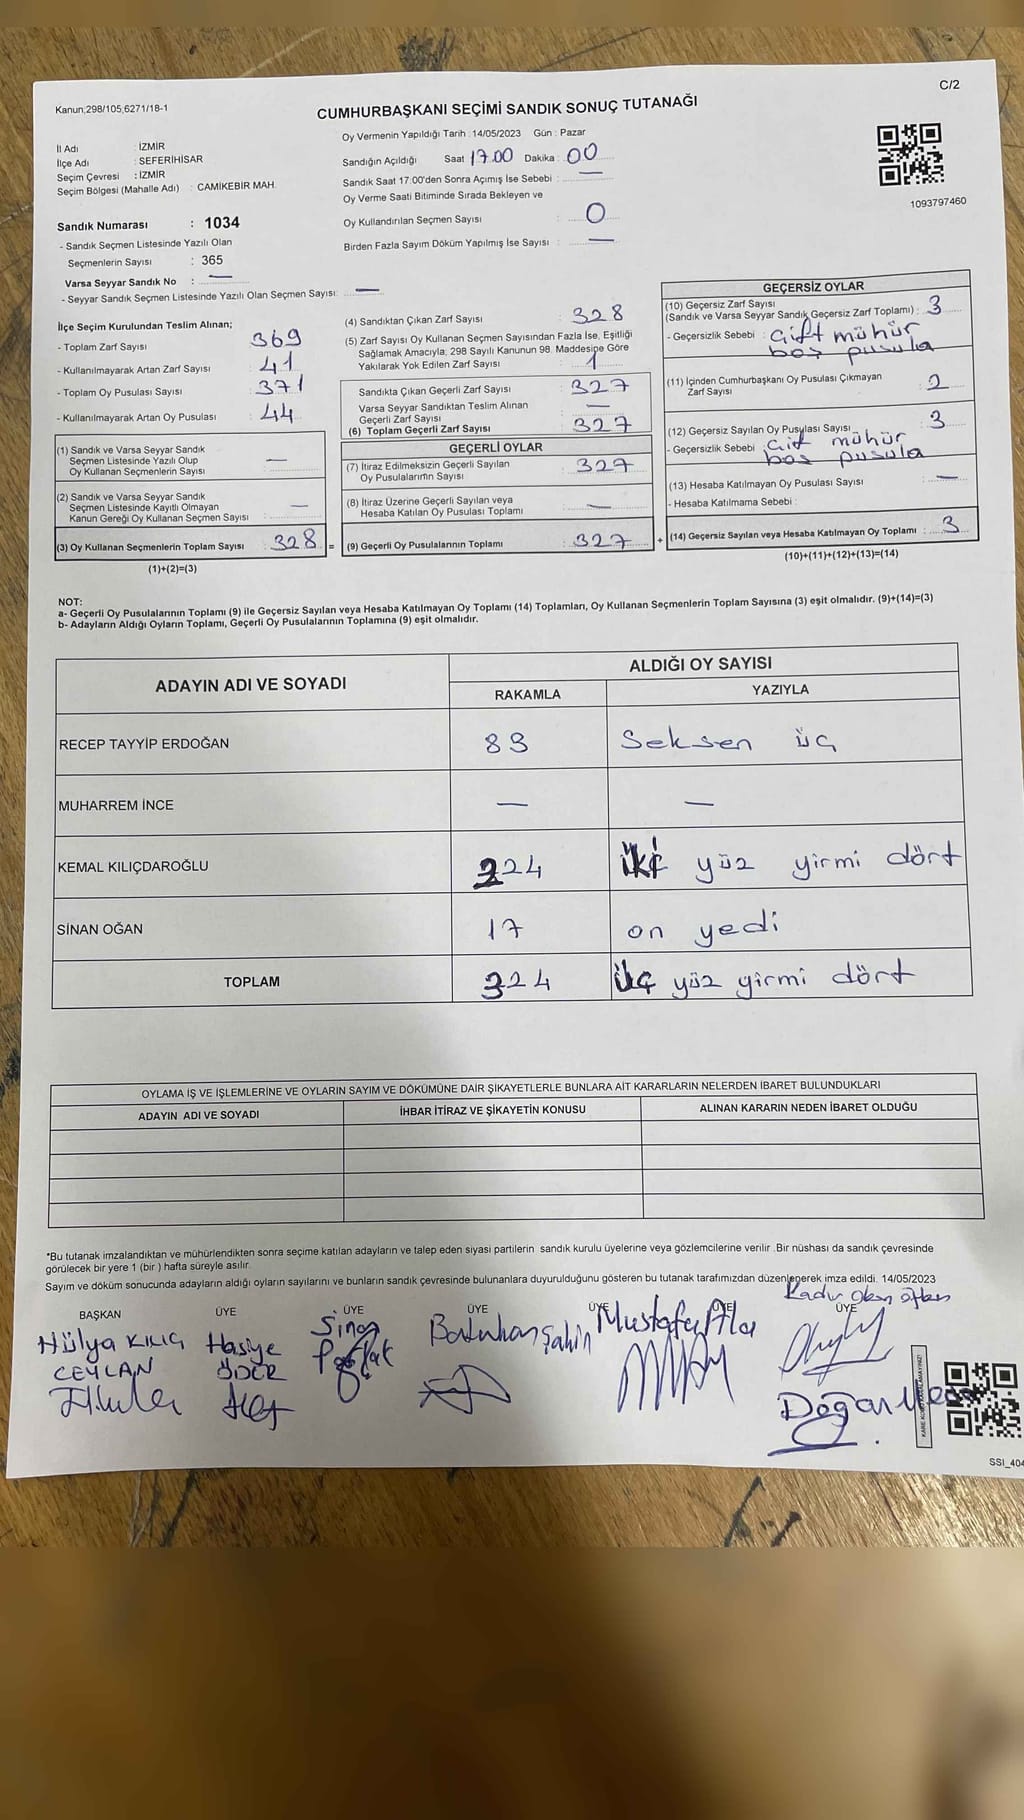 C/2
Kanun;298/105;6271/18-1
CUMHURBAŞKANI SEÇİMİ SANDIK SONUÇ TUTANAĞI
İl Adı : İZMİR
İlçe Adı : SEFERİHİSAR
Seçim Çevresi : İZMİR
Seçim Bölgesi (Mahalle Adı) : CAMİKEBİR MAH.
Oy Vermenin Yapıldığı Tarih :14/05/2023 Gün : Pazar
Sandığın Açıldığı Saat 17.00 Dakika : 00
Sandık Saat 17:00'den Sonra Açımış İse Sebebi : —
Oy Verme Saati Bitiminde Sırada Bekleyen ve
Oy Kullandırılan Seçmen Sayısı : 0
Birden Fazla Sayım Döküm Yapılmış İse Sayısı : —
1093797460
Sandık Numarası : 1034
- Sandık Seçmen Listesinde Yazılı Olan
Seçmenlerin Sayısı : 365
Varsa Seyyar Sandık No : —
- Seyyar Sandık Seçmen Listesinde Yazılı Olan Seçmen Sayısı: —
İlçe Seçim Kurulundan Teslim Alınan;
- Toplam Zarf Sayısı : 369
- Kullanılmayarak Artan Zarf Sayısı : 41
- Toplam Oy Pusulası Sayısı : 371
- Kullanılmayarak Artan Oy Pusulası : 44
(1) Sandık ve Varsa Seyyar Sandık
Seçmen Listesinde Yazılı Olup
Oy Kullanan Seçmenlerin Sayısı : —
(2) Sandık ve Varsa Seyyar Sandık
Seçmen Listesinde Kayıtlı Olmayan
Kanun Gereği Oy Kullanan Seçmen Sayısı : —
(3) Oy Kullanan Seçmenlerin Toplam Sayısı : 328 =
(1)+(2)=(3)
(4) Sandıktan Çıkan Zarf Sayısı : 328
(5) Zarf Sayısı Oy Kullanan Seçmen Sayısından Fazla İse, Eşitliği
Sağlamak Amacıyla; 298 Sayılı Kanunun 98. Maddesine Göre
Yakılarak Yok Edilen Zarf Sayısı : 1
Sandıkta Çıkan Geçerli Zarf Sayısı : 327
Varsa Seyyar Sandıktan Teslim Alınan
Geçerli Zarf Sayısı : —
(6) Toplam Geçerli Zarf Sayısı : 327
GEÇERLİ OYLAR
(7) İtiraz Edilmeksizin Geçerli Sayılan
Oy Pusulalarının Sayısı : 327
(8) İtiraz Üzerine Geçerli Sayılan veya
Hesaba Katılan Oy Pusulası Toplamı : —
(9) Geçerli Oy Pusulalarının Toplamı : 327 +
GEÇERSİZ OYLAR
(10) Geçersiz Zarf Sayısı
(Sandık ve Varsa Seyyar Sandık Geçersiz Zarf Toplamı) : 3
- Geçersizlik Sebebi : Çift mühür
boş pusula
(11) İçinden Cumhurbaşkanı Oy Pusulası Çıkmayan
Zarf Sayısı : 2
(12) Geçersiz Sayılan Oy Pusulası Sayısı : 3
- Geçersizlik Sebebi : Çift mühür
boş pusula
(13) Hesaba Katılmayan Oy Pusulası Sayısı : —
- Hesaba Katılmama Sebebi :
(14) Geçersiz Sayılan veya Hesaba Katılmayan Oy Toplamı : 3
(10)+(11)+(12)+(13)=(14)
NOT:
a- Geçerli Oy Pusulalarının Toplamı (9) ile Geçersiz Sayılan veya Hesaba Katılmayan Oy Toplamı (14) Toplamları, Oy Kullanan Seçmenlerin Toplam Sayısına (3) eşit olmalıdır. (9)+(14)=(3)
b- Adayların Aldığı Oyların Toplamı, Geçerli Oy Pusulalarının Toplamına (9) eşit olmalıdır.
ADAYIN ADI VE SOYADI
ALDIĞI OY SAYISI
RAKAMLA YAZIYLA
RECEP TAYYİP ERDOĞAN 83 Seksen üç
MUHARREM İNCE — —
KEMAL KILIÇDAROĞLU 224 iki yüz yirmi dört
SİNAN OĞAN 17 on yedi
TOPLAM 324 üç yüz yirmi dört
OYLAMA İŞ VE İŞLEMLERİNE VE OYLARIN SAYIM VE DÖKÜMÜNE DAİR ŞİKAYETLERLE BUNLARA AİT KARARLARIN NELERDEN İBARET BULUNDUKLARI
ADAYIN ADI VE SOYADI İHBAR İTİRAZ VE ŞİKAYETİN KONUSU ALINAN KARARIN NEDEN İBARET OLDUĞU
*Bu tutanak imzalandıktan ve mühürlendikten sonra seçime katılan adayların ve talep eden siyasi partilerin sandık kurulu üyelerine veya gözlemcilerine verilir. Bir nüshası da sandık çevresinde
görülecek bir yere 1 (bir) hafta süreyle asılır.
Sayım ve döküm sonucunda adayların aldığı oyların sayılarını ve bunların sandık çevresinde bulunanlara duyurulduğunu gösteren bu tutanak tarafımızdan düzenlenerek imza edildi. 14/05/2023
BAŞKAN ÜYE ÜYE ÜYE ÜYE ÜYE
Hülya KILIÇ
CEYLAN
Hasiye
Sinan
Batuhan Şahin
Mustafa
Kadir
Doğan
KARE KODU KARALAMAYINIZ!
SSI_404